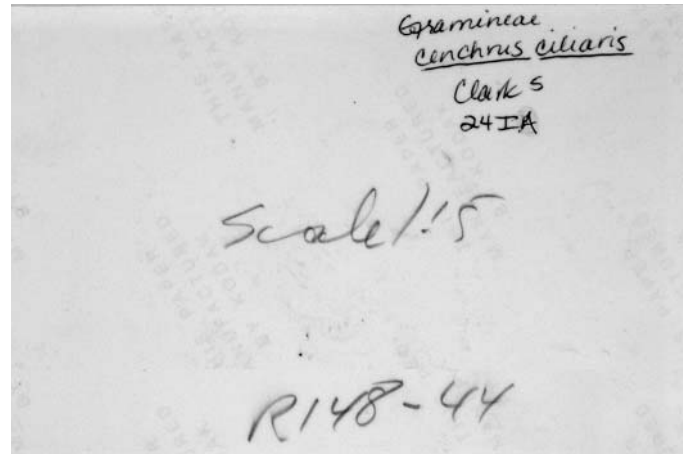 Gramineae
Cenchrus ciliaris
Clark S
24IA
Scale 1:5
R148-44